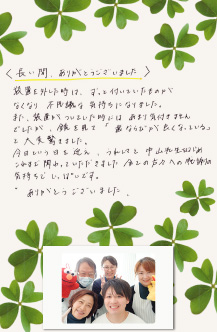 〈長い間、ありがとうございました〉
装置を外した時は、ずっと付いていたものが
なくなり 不思議な気持ちになりました。
また、装置がついていた時には あまり気付きません
でしたが、鏡を見て「歯ならびが良くなっている」
と大変驚きました。
今日という日を迎え、うれしさと 中山先生はじめ
これまで関わっていただきました 全ての方々への感謝の
気持ちで いっぱいです。
ありがとうございました。